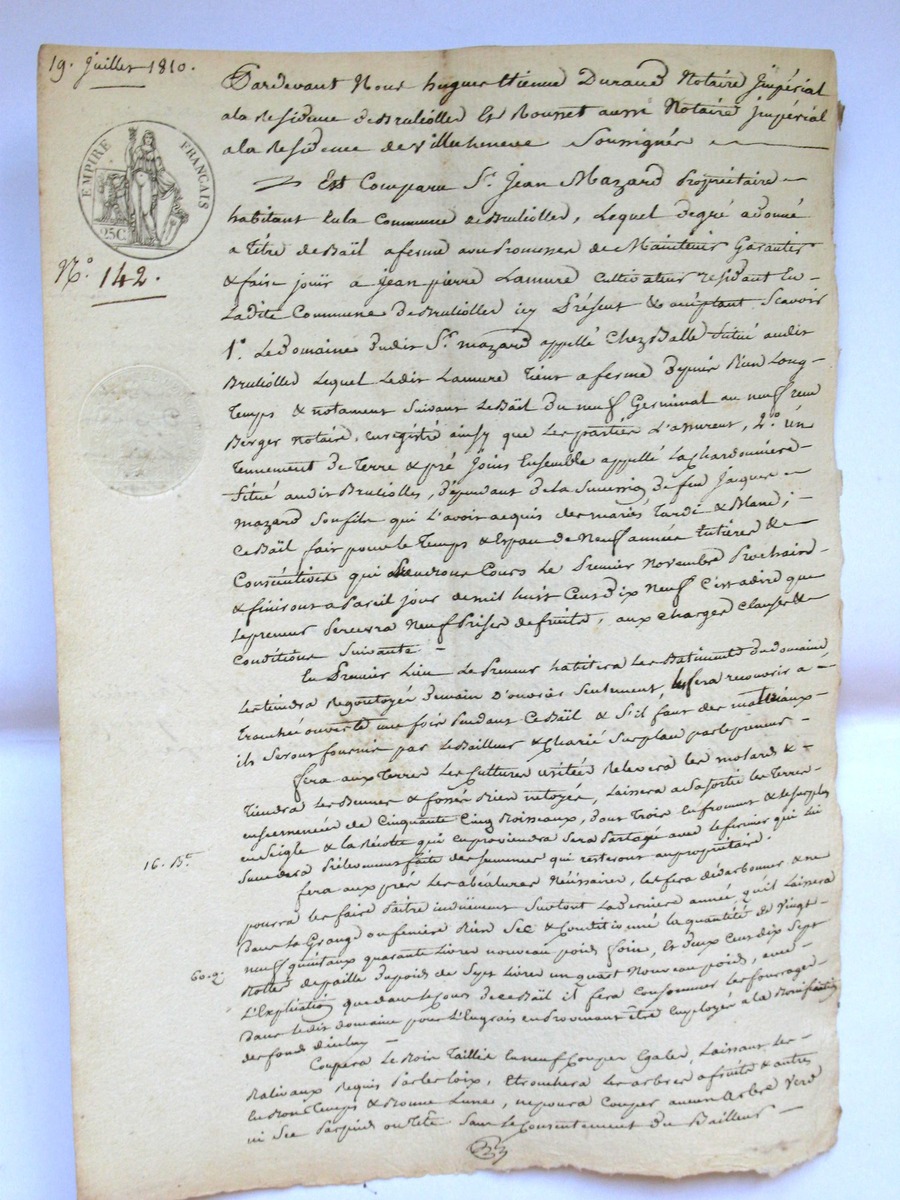 19. Juillet 1810.
EMPIRE FRANÇAIS
25C
N.° 142.
Pardevant Nous hugues Etienne Durand Notaire Impérial
ala Residence de Brulioller Et Rousset aussi Notaire Impérial
ala Residence de Villecheneve Soussignés
Est Comparu S.r Jean Mazard Propriétaire
habitant Enla Commune de Brulioller, Lequel degré adonné
a titre de Bail aferme avec Promesse de Maintenir Garantir
& faire jouir a Jean pierre Lamure Cultivateur residant En
Ladite Commune de Brulioller icy Présent & acceptant Scavoir
1.° Le Domaine dudit S.r mazard appellé Chez Balle Situé audit
Brulioller Lequel Ledit Lamure tient aferme depuis Bien Long
Temps & notament Suivant Le Bail du neuf Germinal an neuf reçu
Berger Notaire, enregistré ainsy que les parties L'assurent, 2.° un
Tennement de Terre & pré Joins Ensemble appellé La Chardonniere
Situé audit Brulioller, dépendant de la Succession de feu Jacques
mazard Son fils qui L'avoit acquis des mariés Tardi & Blanc;
Ce Bail fait pour le Temps & Espace de Neuf années Entières &
Consécutives qui Prendront Cours Le Premier Novembre Prochain
& finiront a Pareil jour de mil huit Cent dix Neuf C'est adire que
Le preneur Percevra Neuf Prises de fruits, aux charges clauses &
Conditions Suivantes
En Premier Lieu Le Preneur habitera Les Batiments du domaine
Les tiendra regoutoyés de main d'ouvrier Seulement, les fera recouvrir a
Tranchée ouverte une fois Pendant Ce Bail & S'il faut des matériaux
ils Seront fournis par Le Bailleur & Charié Surplace par le preneur
fera aux Terres Les Cultures usitées Relevera les
Tiendra Les & fossés Bien netoyés, Laissera a Sa Sortie les Terres
ensemencées de Cinquante Cinq Boisseaux, dont Trois en froment & le Surplus
en Seigle & la Récolte qui en proviendra Sera Partagé avec le fermier qui lui
Succedera Prélevement faite des Semences qui resteront au propriétaire.
16. B.x
fera aux prés Les abéalures Nécessaires, les fera & ne
pourra les faire Paitre induement Surtout La derniere année, qu'il Laissera
Dans La Grange ou feniere Bien Sec & Conditionné la quantité de Vingt
neuf quintaux quarante Livres nouveau poids foin, Et deux Cent dix Sept
60. q.
Bottes de paille du poids de Sept Livres un quart Nouveau poids, avec
L'Explication que dans le Cours de ce Bail il fera Consommer les fourrages
Dans ledit domaine pour L'Engrais en Provenant être Employé a la Bonification
des fonds d'icelui
Coupera Le Bois Taillis En neuf Coupes Egales, Laissant Les
Balivaux Requis Par les Loix, Etronchera Les arbres a fruits & autres
En Bons Temps & Bonne Lune, ne poura Couper aucun arbre Verd
ni Sec Par pied ou Tête Sans Le Consentement du Bailleur